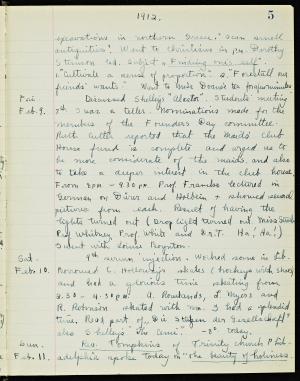 1912.
5
excavations in northern Greece." "Seen small
antiquities". Went to Christians in p.m. Dorothy
Stimson led. Subject "Finding one's self".
"Cultivate a sense of proportion" & "Forestall our
friends' wants". Went to Miss
Fri.
Feb. 9.
Discussed Shelley's "Alastor". Students' meeting
I was a teller. Nominations made for the
members of the Founders Day committee.
Ruth Cutler reported that the Maids' Club
House fund is complete and urged us to
be more considerate of the maids and also
to take a deeper interest in the club house
From 8 P.M. - 9.30 P.M. Prof. Francke lectured in
German on Dürer and Holbein & showed several
pictures from each. Result of having the
lights turned out (Drop light turned out. Miss
Prof. Whitney, Prof. White and Dr. T. Ha! Ha!)
I went with Louise Boynton.
Sat.
Feb. 10.
4th serum injection. Worked some in Lib.
Borrowed C. Holloway's skates (hockeys with shoes)
and had a glorious time skating from
2.30 - 4.30 P.M. A. Rowlands, L. Myers and
R. Robinson skated with me. I had a splendid
time. Read part of "Die Stützen der Gesellschaft"
also Shelley's "The Cenci". -8° today.
Sun.
Feb. 11.
Rev. Tompkins of Trinity church Phil-
adelphia spoke today on "the beauty of holiness.